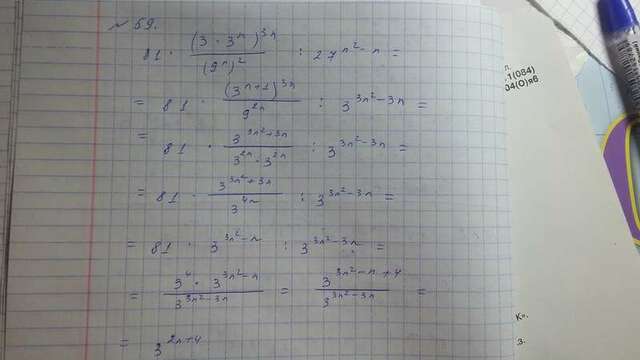 № 69.
81 · (3 · 3ⁿ)³ⁿ / (9ⁿ)² : 27ⁿ²⁻ⁿ =
= 81 · (3ⁿ⁺¹)³ⁿ / 9²ⁿ : 3³ⁿ²⁻³ⁿ =
= 81 · 3³ⁿ²⁺³ⁿ / 3²ⁿ · 3²ⁿ : 3³ⁿ²⁻³ⁿ =
= 81 · 3³ⁿ²⁺³ⁿ / 3⁴ⁿ : 3³ⁿ²⁻³ⁿ =
= 81 · 3³ⁿ²⁻ⁿ : 3³ⁿ²⁻³ⁿ =
= 3⁴ · 3³ⁿ²⁻ⁿ / 3³ⁿ²⁻³ⁿ = 3³ⁿ²⁻ⁿ⁺⁴ / 3³ⁿ²⁻³ⁿ =
= 3²ⁿ⁺⁴
.1(084)
04(0)96
Кн.
3.